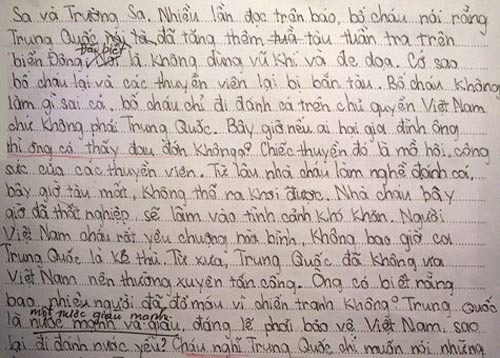 Sa và Trường Sa. Nhiều lần đọc trên báo, bố cháu nói rằng
Trung Quốc đã tăng thêm tàu tuần tra trên
đặc biệt
biển Đông, là không dùng vũ khí và đe doạ. Cớ sao
bố cháu lại và các thuyền viên lại bị bắn tàu. Bố cháu không
làm gì sai cả, bố cháu chỉ đi đánh cá trên chủ quyền Việt Nam
chứ không phải Trung Quốc. Bây giờ nếu ai hại gia đình ông
thì ông có thấy đau đớn không ạ? Chiếc thuyền đó là mồ hôi, công
sức của các thuyền viên. Từ lâu nhà cháu làm nghề đánh cá,
bây giờ tàu mất, không thể ra khơi được. Nhà cháu bây
giờ đã thất nghiệp sẽ lâm vào tình cảnh khó khăn. Người
Việt Nam cháu rất yêu chuộng hoà bình, không bao giờ coi
Trung Quốc là kẻ thù. Từ xưa, Trung Quốc đã không ưa
Việt Nam nên thường xuyên tấn công. Ông có biết rằng
bao nhiêu người đã đổ máu vì chiến tranh không? Trung Quốc
một nước giàu mạnh
là nước mạnh và giàu, đáng lẽ phải bảo vệ Việt Nam, sao
lại đi đánh nước yếu? Cháu nghĩ Trung Quốc chỉ muốn nói những